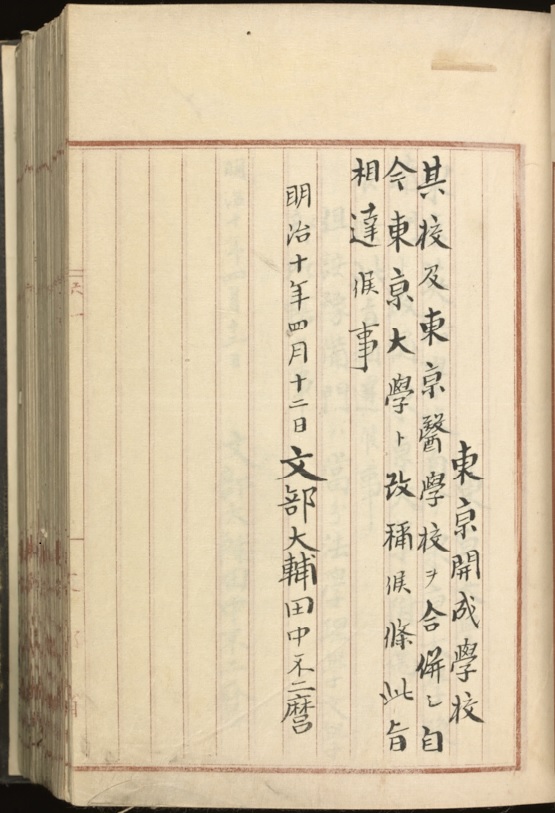 東京開成學校
其校及東京醫學校ヲ合併シ自
今東京大學ト改稱候條此旨
相達候事
明治十年四月十二日文部大輔田中不二麿